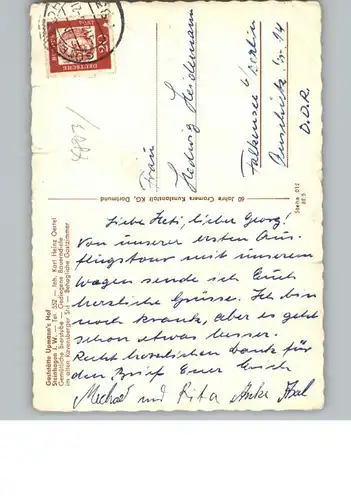 DEUTSCHE
4883/
Frau
Hedwig Heidemann
Falkensee b/Berlin
14
D.D.R.
60 Jahre Cramers Kunstanstalt KG, Dortmund
Steha 012
Gaststätte Upmann's Hof
Steinhagen i. W. — Tel. 552 — Inh. Karl Heinz Oertel
Gemütliche Bierstube — Gediegene Bauerndiele
im alten Ravensberger Stil — Behagliche Gastzimmer
Liebe Heti, lieber Georg!
Von unserer ersten Aus-
flugstour mit unserem
Wagen sende ich Euch
herzliche Grüsse. Ich bin
noch krank, aber es geht
schon etwas besser.
Recht herzlichen Dank für
den Brief Euer Erich
Michael und Rita Anke